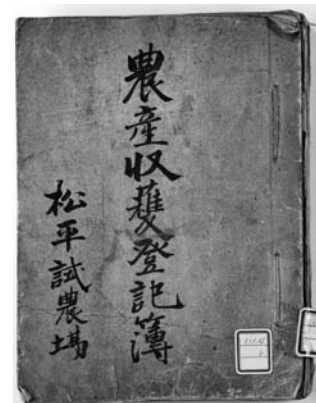 農産収穫登記簿
松平試農場